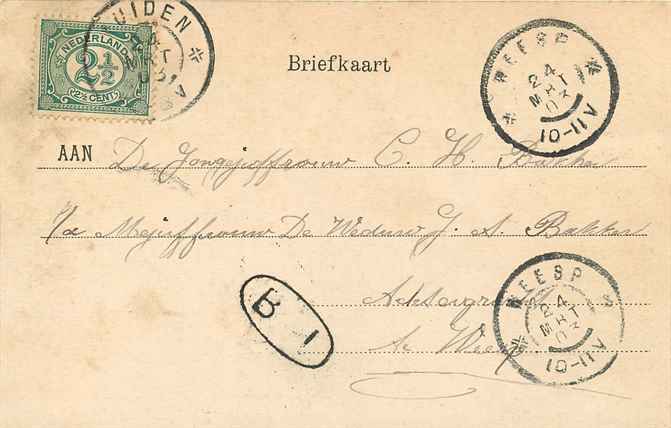 UIDEN
NEDERLAND
2½
2½ CENT
Briefkaart
WEESP
24
MRT
03
10-11V
AAN De Jongejuffrouw C. H. Bakker
p/a Mejuffrouw De Weduw J. A. Bakker
Achtergracht
te Weesp
B 1
WEESP
24
MRT
03
10-11V